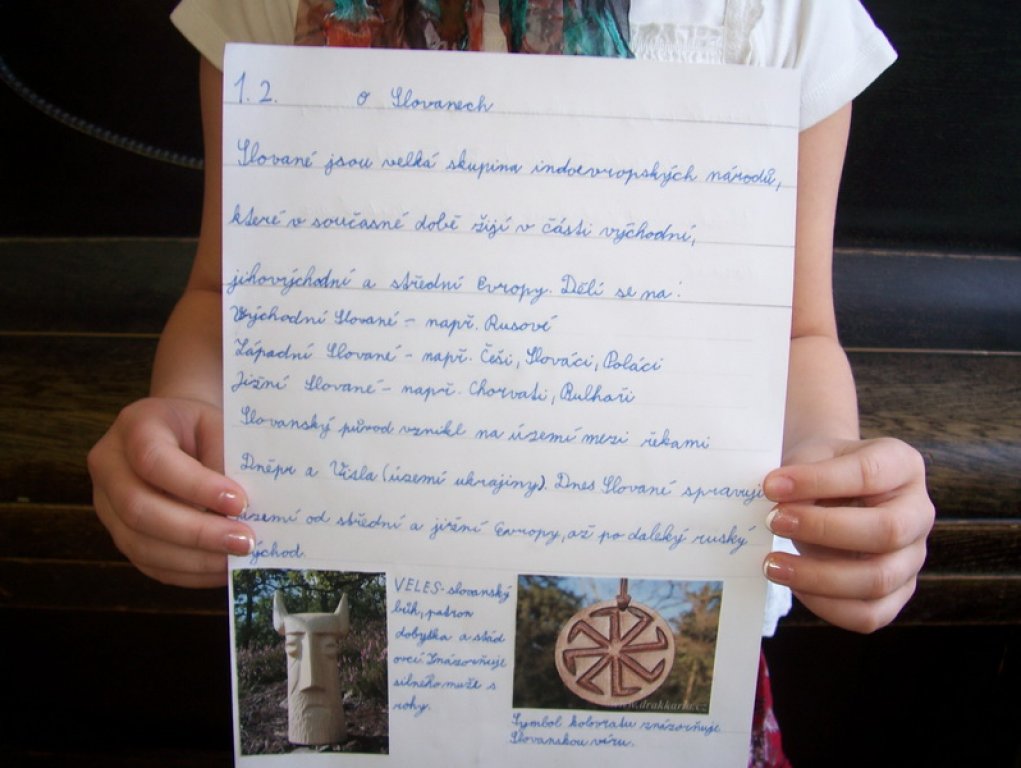 1.2. o Slovanech
Slované jsou velká skupina indoevropských národů,
které v současné době žijí v části východní,
jihovýchodní a střední Evropy. Dělí se na:
Východní Slované - např. Rusové
Západní Slované - např. Češi, Slováci, Poláci
Jižní Slované - např. Chorvati, Bulhaři
Slovanský původ vznikl na území mezi řekami
Dněpr a Visla (území ukrajiny). Dnes Slované spravují
území od střední a jižní Evropy, až po daleký ruský
východ.
VELES - slovanský
bůh, patron
dobytka a stád
ovcí. Znázorňuje
silného muže s
rohy.
www.drakkaria.cz
Symbol kolovratu znázorňuje
Slovanskou víru.